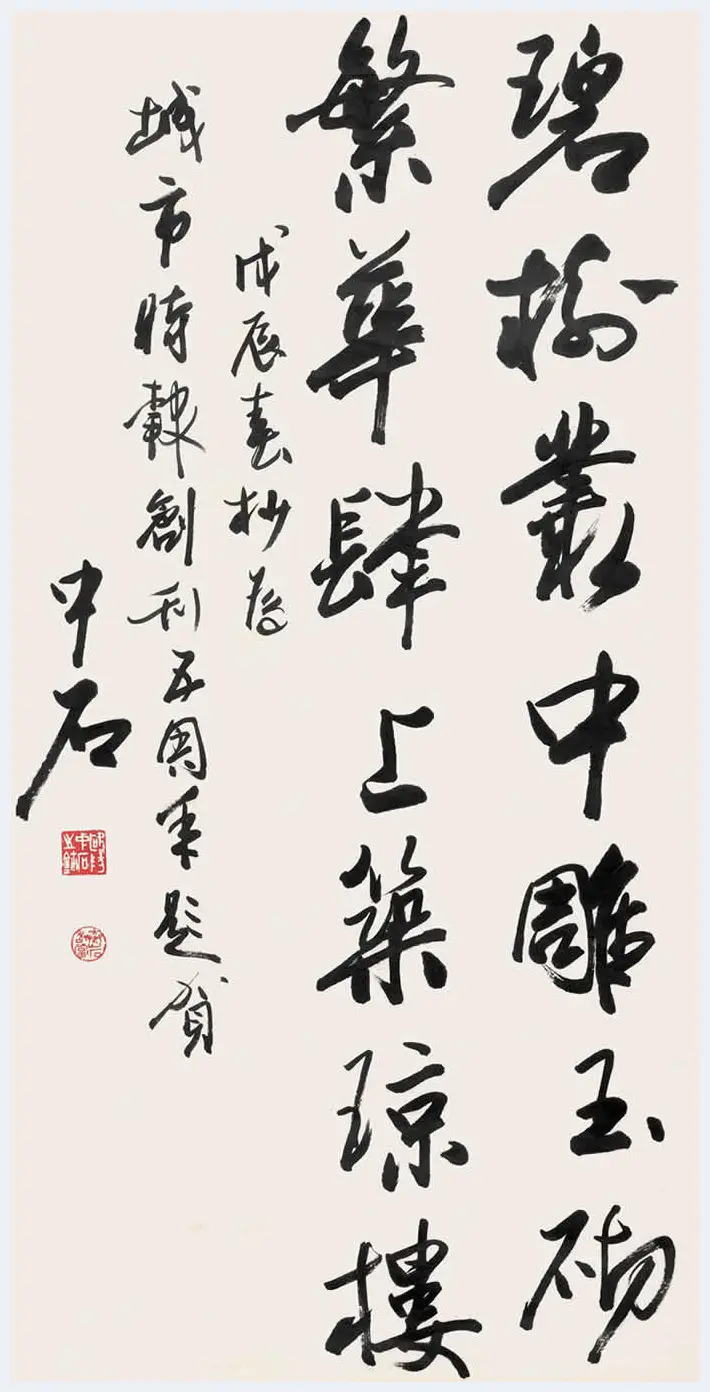 碧樹叢中雕玉砌
繁華肆上築琼樓
戊辰春杪為
城市時報創刊五周年題賀
中石
歐陽中石之鉨